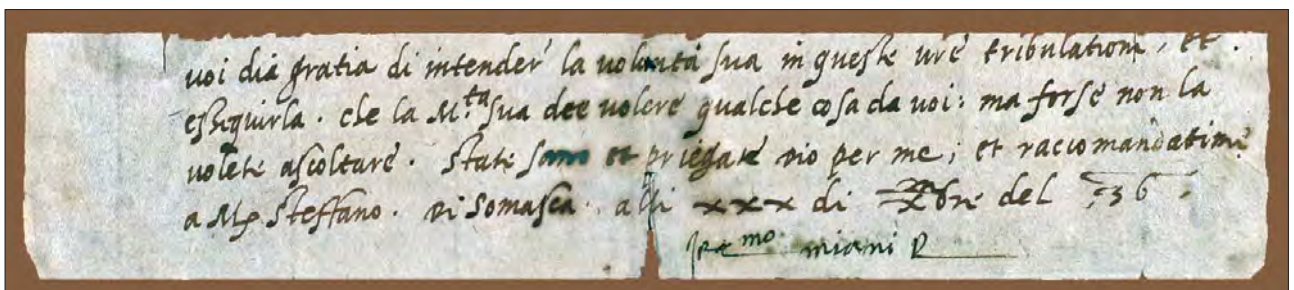 voi dia gratia di intender la volunta sua in queste vre tribulationi, et
esseguirla. che la M.ta sua dee volere qualche cosa da voi: ma forse non la
volete ascoltare. State sano et priegate Dio per me; et raccomandatime
a Mp Steffano. Di Somasca. alli xxx di Xbre del 36.
miani